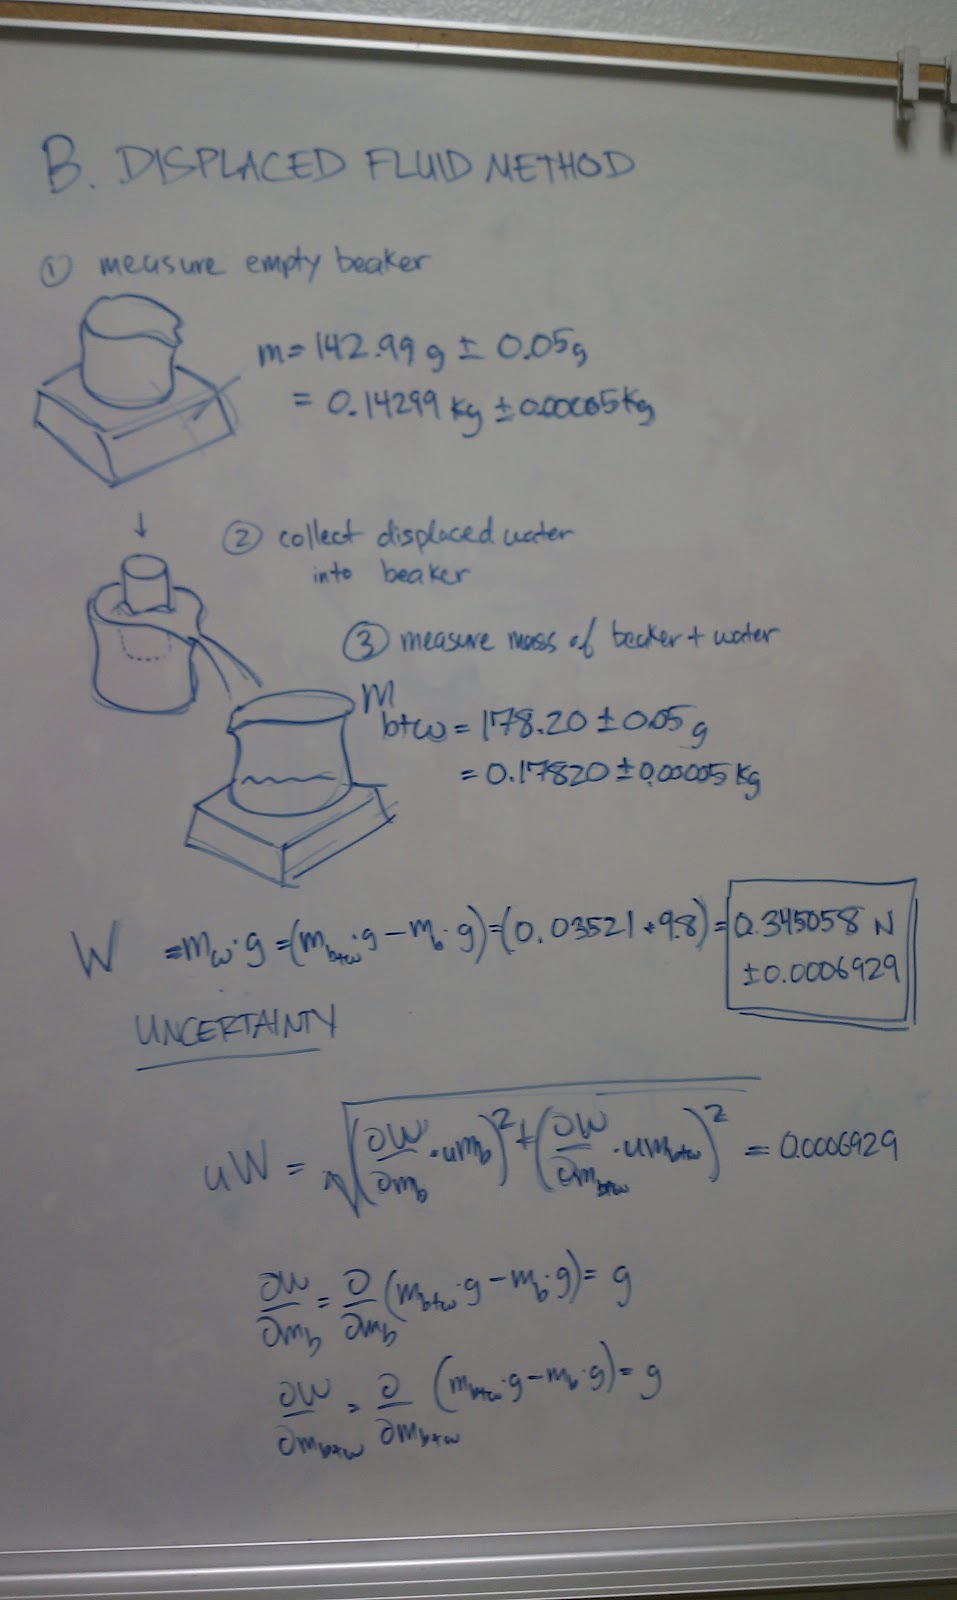 B. DISPLACED FLUID METHOD
① measure empty beaker
m = 142.99 g ± 0.05g
= 0.14299 kg ± 0.00005kg
② collect displaced water
into beaker
③ measure mass of beaker + water
m_b+w = 178.20 ± 0.05 g
= 0.17820 ± 0.00005 kg
W = m_w · g = (m_b+w · g − m_b · g) = (0.03521 * 9.8) = 0.345058 N
± 0.0006929
UNCERTAINTY
uW = √((∂W/∂m_b · um_b)² + (∂W/∂m_b+w · um_b+w)²) = 0.0006929
∂W/∂m_b = ∂/∂m_b (m_b+w · g − m_b · g) = g
∂W/∂m_b+w = ∂/∂m_b+w (m_b+w · g − m_b · g) = g